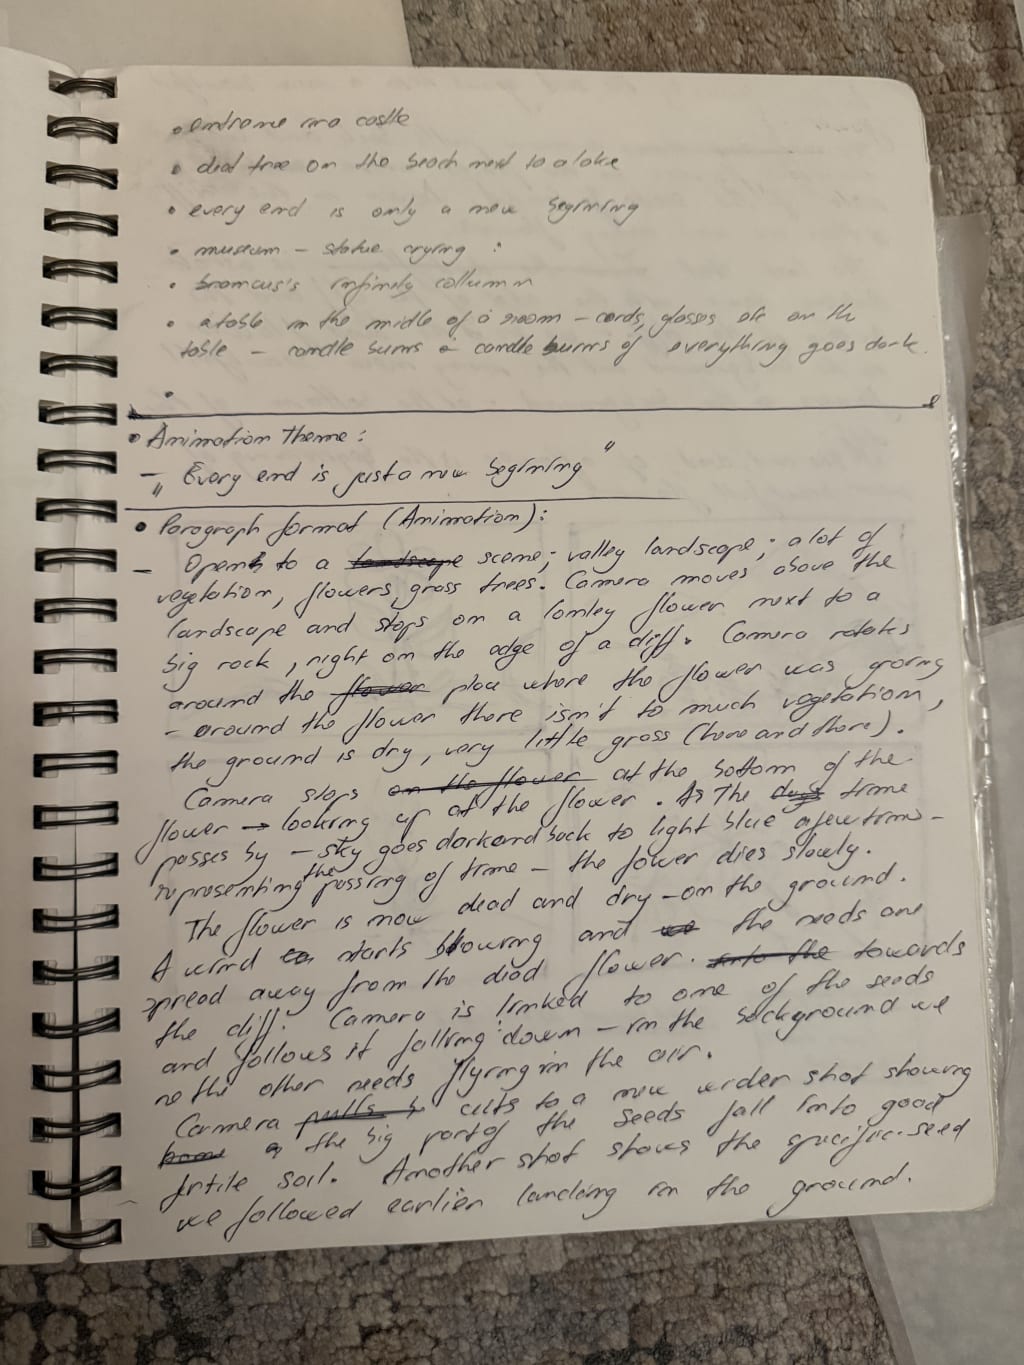 • entrance into castle
• dead tree on the beach next to a lake
• every end is only a new begining
• museum – statue crying :
• brancusi's infinity collumn
• a table in the midle of a room – cards, glasses are on the
table – candle burns & candle burns of everything goes dark.
•
• Animation Theme :
– „ Every end is just a new begining "
• Paragraph format (Animation):
– Opens to a landscape scene; valley landscape; a lot of
vegetation, flowers, grass trees. Camera moves above the
landscape and stops on a lonley flower next to a
big rock, right on the edge of a cliff. Camera rotates
around the flower place where the flower was growing
– around the flower there isn't to much vegetation,
the ground is dry, very little grass (here and there).
Camera stops on the flower at the bottom of the
flower → looking up at the flower. As The time
passes by – sky goes dark and back to light blue a few times –
representing the passing of time – the flower dies slowly.
The flower is now dead and dry – on the ground.
A wind starts blowing and the seeds are
spread away from the dead flower. into the towards
the cliff. Camera is linked to one of the seeds
and follows it falling down – in the background we
see the other seeds flying in the air.
Camera pulls cuts to a new wider shot showing
the big part of the seeds fall into good
fertile soil. Another shot shows the specific seed
we followed earlier landing on the ground.